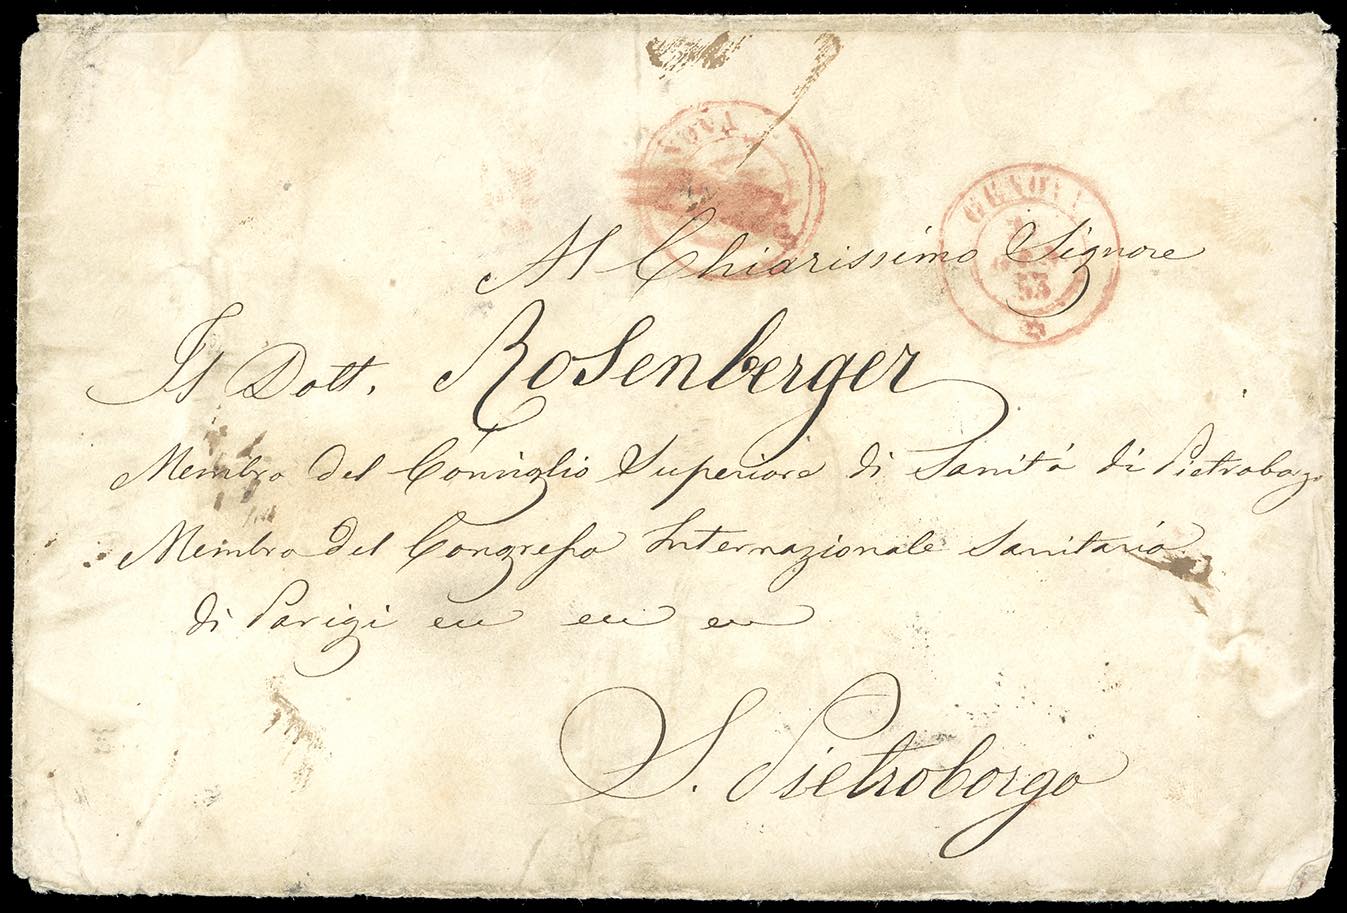 GENOVA
53
Al Chiarissimo Signore
Il Dott. Rosenberger
Membro del Consiglio Superiore di Sanità di Pietroborgo
Membro del Congresso Internazionale Sanitario
di Parigi ecc ecc ecc
S. Pietroborgo